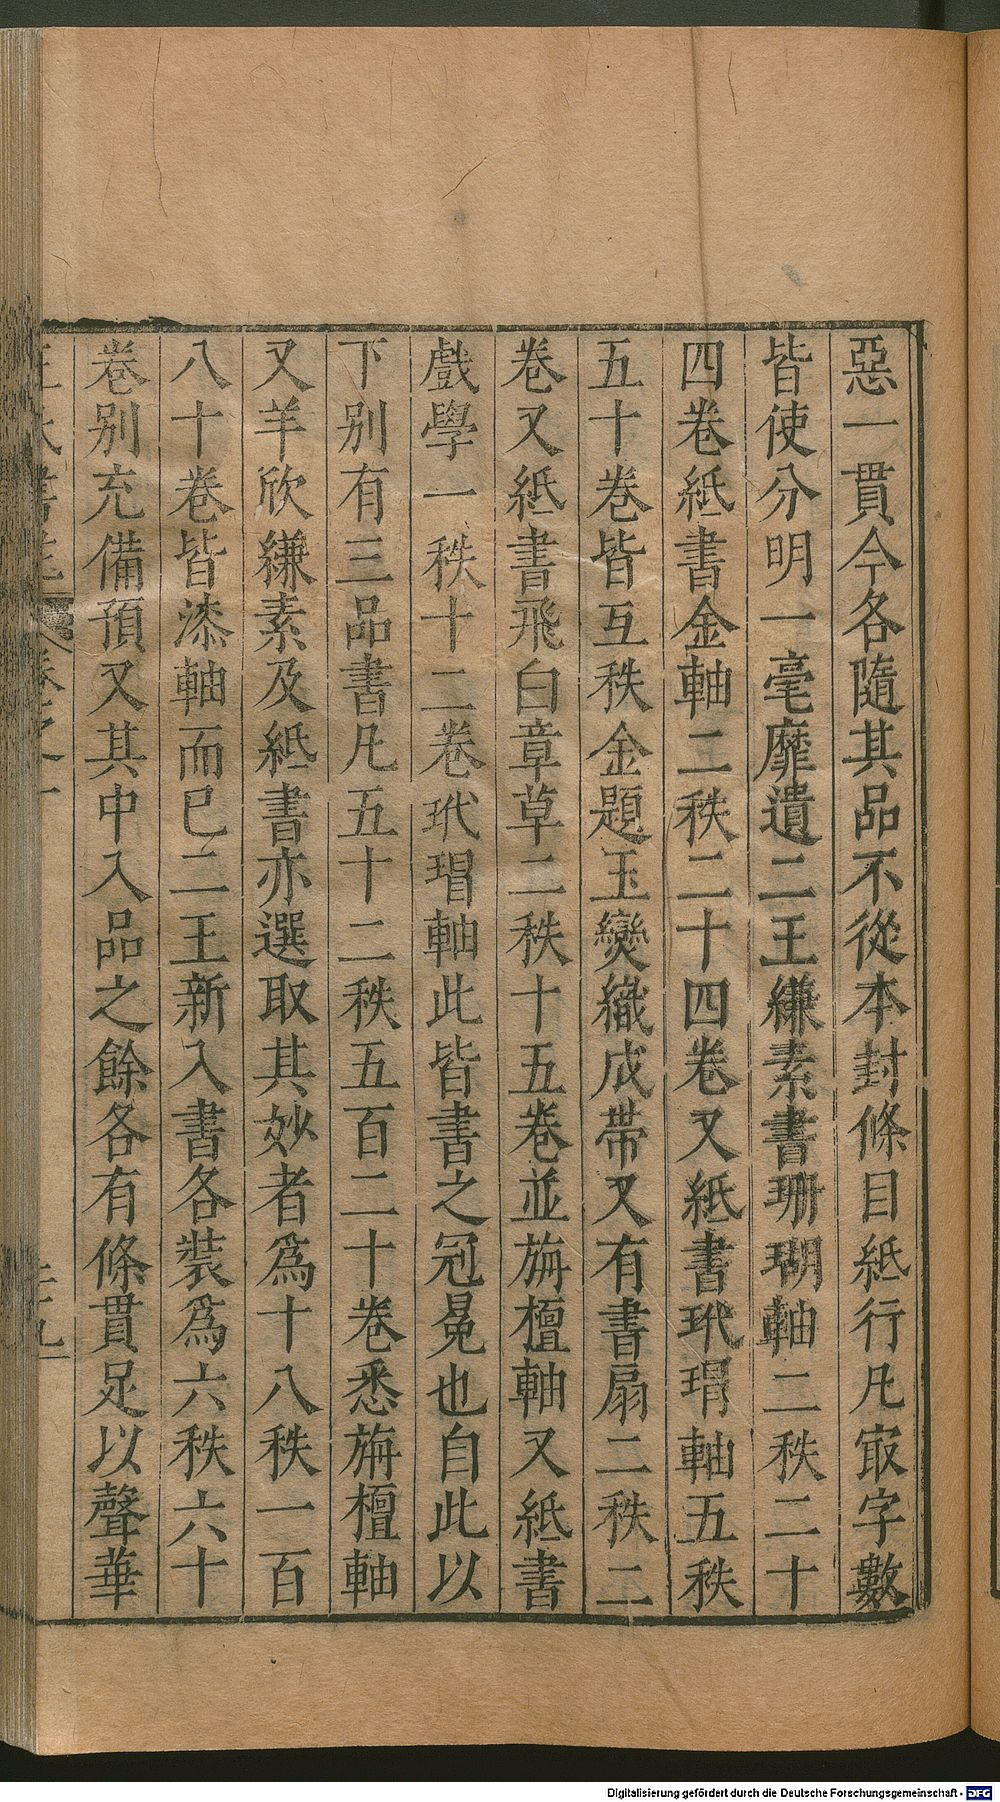 惡一貫今各隨其品不從本封條目紙行凡㝡字數
皆使分明一毫靡遺二王縑素書珊瑚軸二秩二十
四卷紙書金軸二秩二十四卷又紙書玳瑁軸五秩
五十卷皆互秩金題玉燮織成帶又有書扇二秩二
卷又紙書飛白章草二秩十五卷並旃檀軸又紙書
戲學一秩十二卷玳瑁軸此皆書之冠冕也自此以
下別有三品書凡五十二秩五百二十卷悉旃檀軸
又羊欣縑素及紙書亦選取其妙者爲十八秩一百
八十卷皆漆軸而已二王新入書各裝爲六秩六十
卷別充備預又其中入品之餘各有條貫足以聲華
卷之一
Digitalisierung gefördert durch die Deutsche Forschungsgemeinschaft - DFG